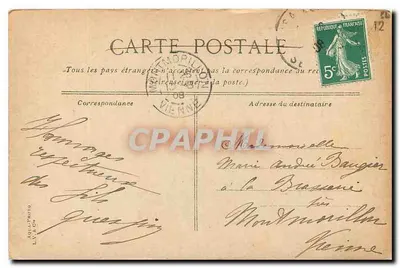 CARTE POSTALE
Tous les pays étrangers n'acceptent pas la correspondance au recto
(se renseigner à la poste.)
Correspondance
Adresse du destinataire
MONTMORILLON
08
VIENNE
REPUBLIQUE FRANÇAISE
5c
POSTES
12
CPAPHIL
Hommages
respectueux
des fils
Mademoiselle
Marie André Baugier
à la Brasserie
près
Montmorillon
Vienne